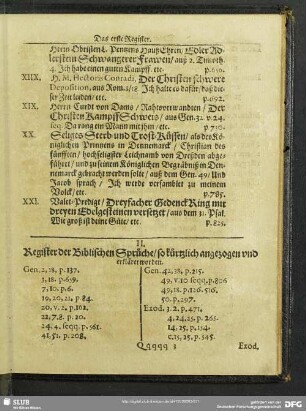 Das erste Register.
Herrn Obristen L. Pengens Hauß Ehren / Edler Ad-
lersteen Schwangerer Frawen / auß 2. Timoth.
4. Ich habe einen guten Kampff. etc.
XIIX. H. M. Hectoris Conradi, Der Christen schwere
Deposition, aus Rom. 1/18 Ich halte es dafür / daß die-
ser Zeit leiden / etc. p. 692.
XIX. Herrn Curdt von Dams / Rahtsverwandten / Der
Christen Kampff Schweis / aus Gen. 32. v. 24.
seq. Da rang ein Mann mit jhm / etc. p. 710.
XX. Seliges Sterb und Trost Küssen / als der Kö-
niglichen Prinzens in Dennemarck / Christian des
fünfften / hochseligster Leichnamb von Dreßden abge-
führet / und zu seinen Königlichen Begräbniß in Den-
nemarck gebracht werden solte / auß dem Gen. 49 / Und
Jacob sprach / Ich werde versamblet zu meinen
Volck / etc. p. 785.
XXI. Valet-Predigt / Dreyfacher Gedenck Ring mit
dreyen Edelgesteinen versetzet / aus dem 31. Psal.
Wie groß ist deine Güte / etc. p. 825.
II.
Register der Biblischen Sprüche / so kürtzlich angezogen und
erkläret werden.
Gen. 2, 18. p. 137.
3, 18. p. 659.
7, 10. p. 6.
19, 20, 21, p 84.
20, v. 2, p. 161.
22, 7, 8. p. 20.
24, 4. seqq. p. 561.
41, 51. p. 208.
Gen. 42, 38, p. 215.
49, v. 10 seqq. p. 806
49, 18. p. 126. 516.
50. p. 297.
Exod. 3, 2. p. 471.
4, 24, 25. p. 265.
14, 25. p. 154.
15, 25. p. 345.
Qqqqq
Exod.
SLUB
Wir führen Wissen.
DFG